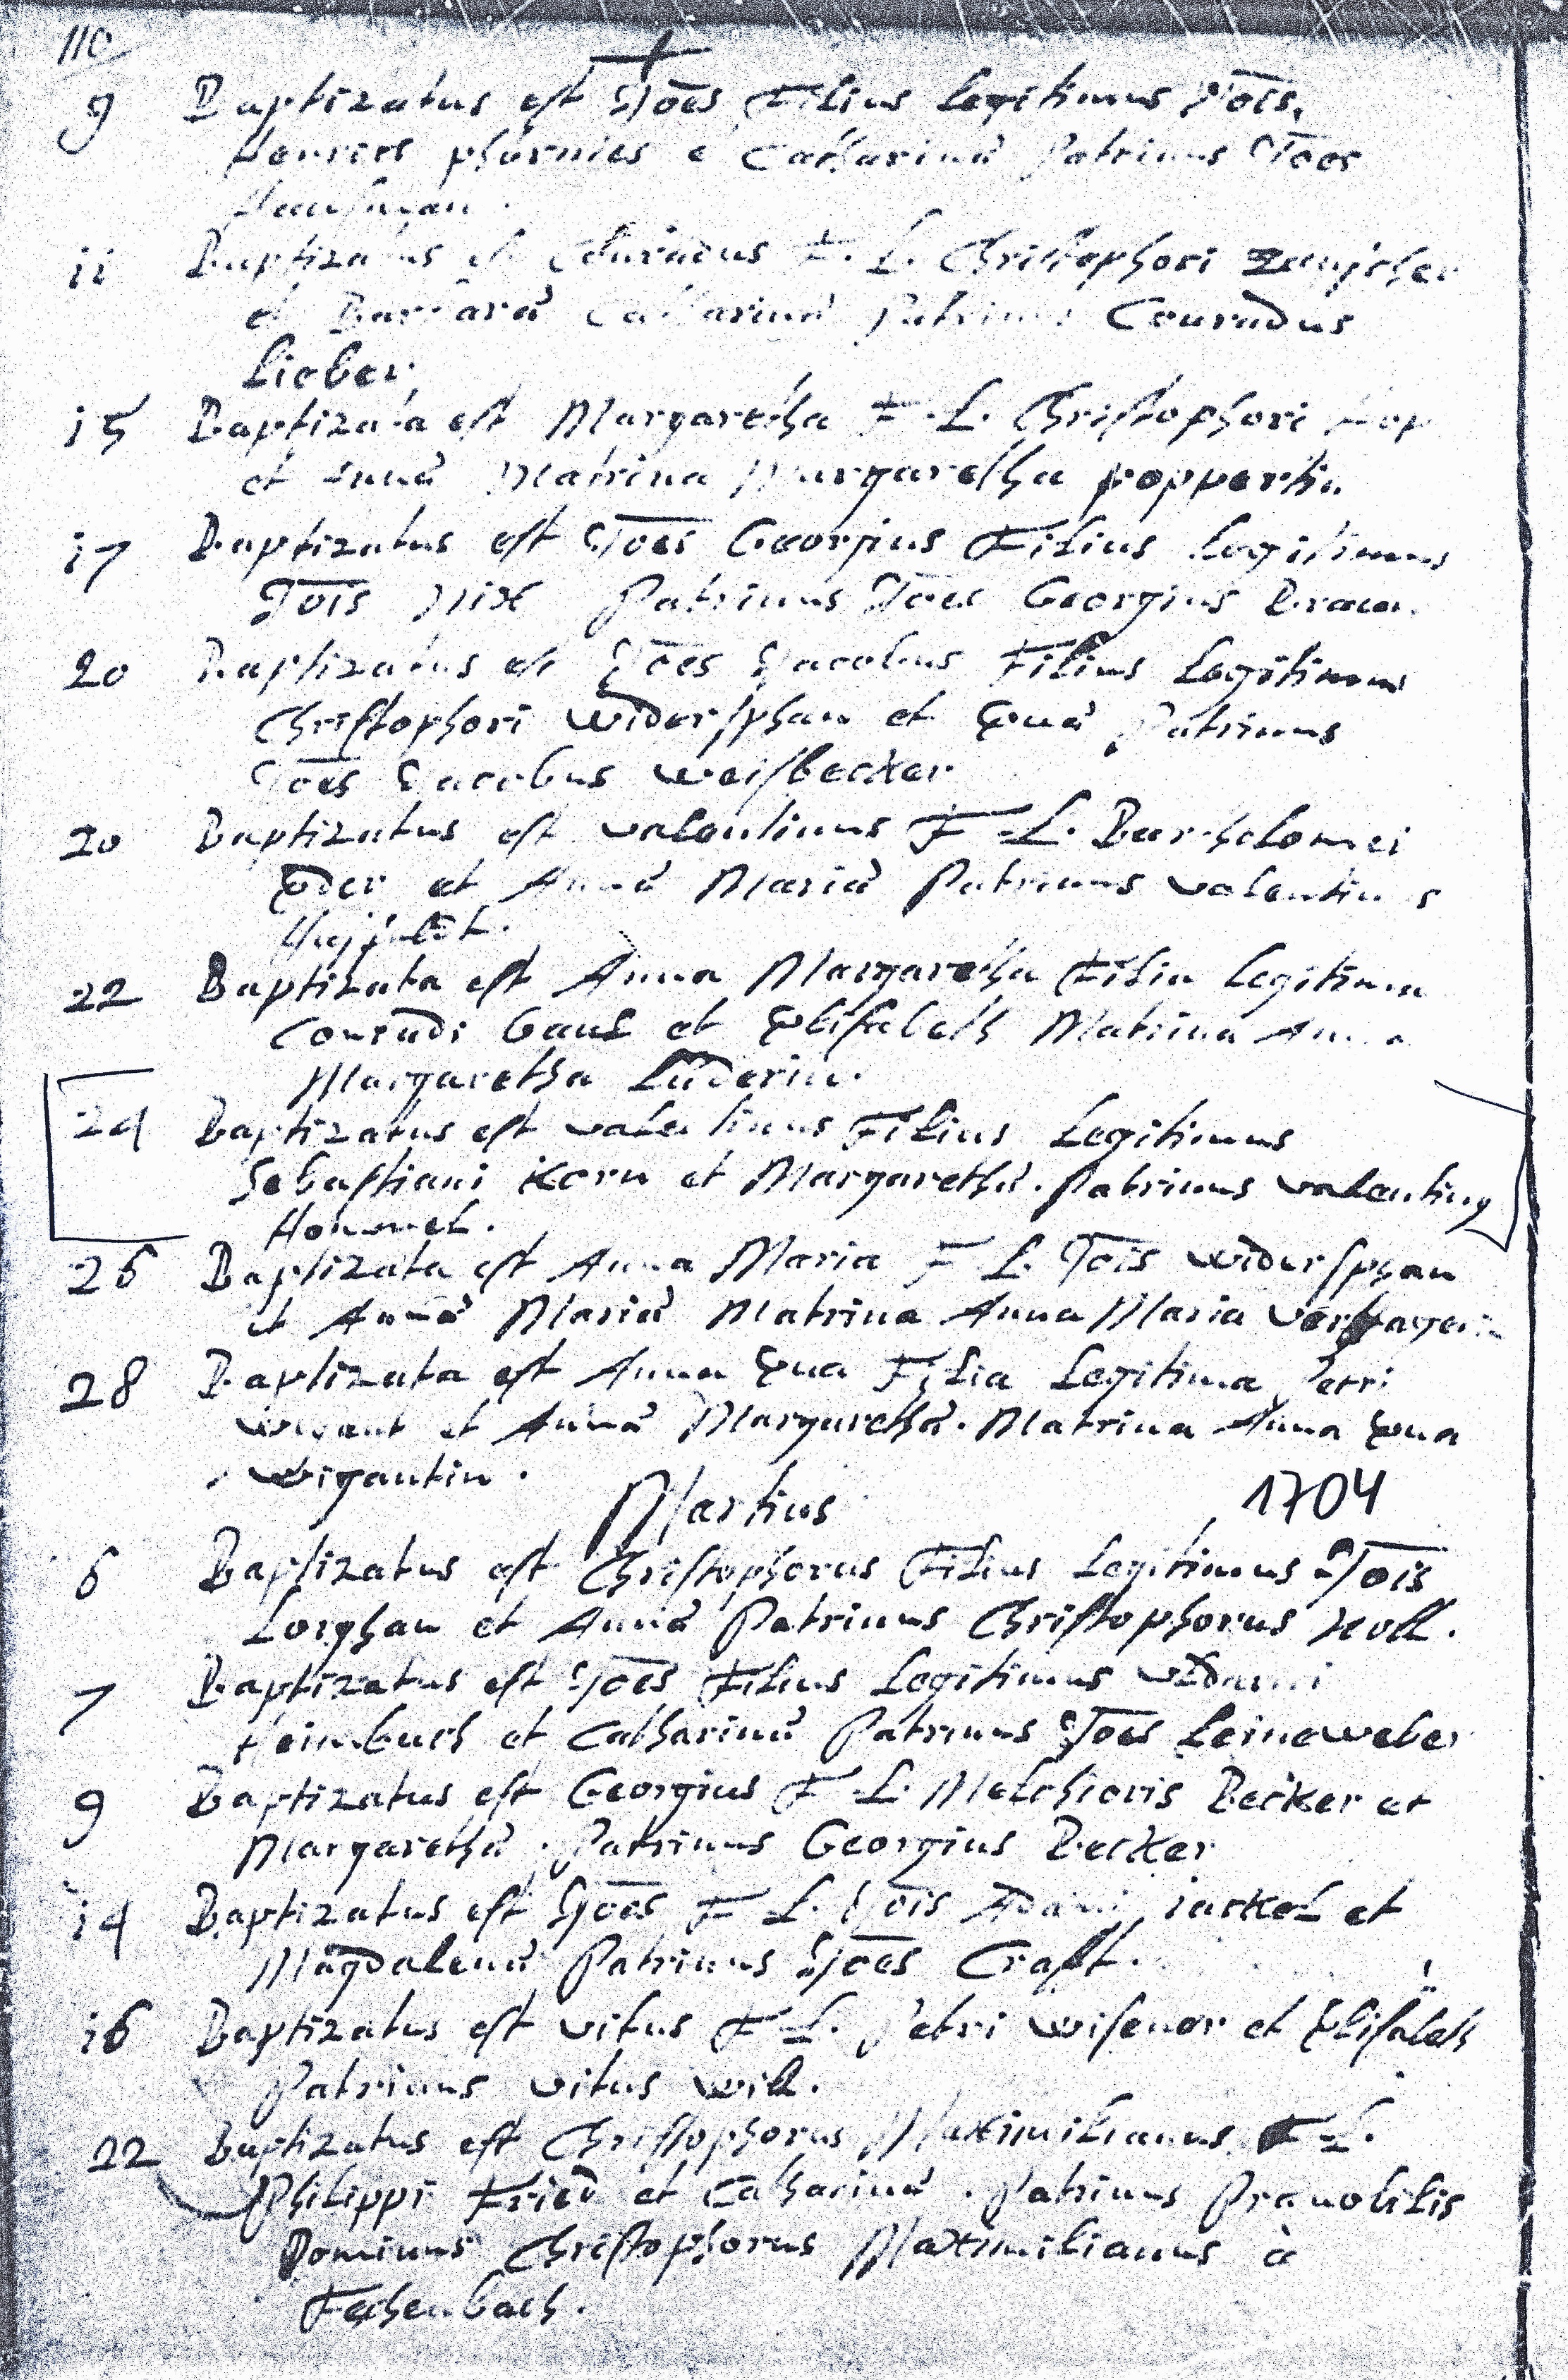 110
9 Baptizatus est Jōes Filius Legitimus Jōis
Henrici et Catharinæ Patrinus Jōes
11 Baptizatus est Conradus F. L. Christophori
et Barbaræ Catharinæ Patrinus Conradus
Lieber
15 Baptizata est Margaretha F. L. Christophori
et Annæ Matrina Margaretha poppertin
17 Baptizatus est Jōes Georgius Filius Legitimus
Jōis Nix Patrinus Jōes Georgius Braun
20 Baptizatus est Jōes Jacobus Filius Legitimus
Christophori widersphan et Evæ Patrinus
Jōes Jacobus weisbecker
20 Baptizatus est valentinus F. L. Bartholomei
Eder et Annæ Mariæ Patrinus valentinus
22 Baptizata est Anna Margaretha Filia Legitima
Conradi Gans et Elisabeth Matrina Anna
Margaretha Lüderin.
24 Baptizatus est valentinus Filius Legitimus
Sebastiani Korn et Margarethæ. Patrinus valentinus
Hommel.
26 Baptizata est Anna Maria F. L. Jōis widersphan
et Annæ Mariæ Matrina Anna Maria
28 Baptizata est Anna Eva Filia Legitima Petri
wigant et Annæ Margarethæ. Matrina Anna Eva
wigantin.
Martius 1704
6 Baptizatus est Christophorus Filius Legitimus Jōis
Lorghan et Annæ Patrinus Christophorus Noll.
7 Baptizatus est Jōes Filius Legitimus
Heimbuch et Catharinæ Patrinus Jōes Leineweber
9 Baptizatus est Georgius F. L. Melchioris Becker et
Margarethæ. Patrinus Georgius Becker
14 Baptizatus est Jōes F. L. Jōis Adami jackel et
Magdalenæ Patrinus Jōes Craft.
16 Baptizatus est vitus F. L. Petri wisener et Elisabeth
Patrinus vitus will.
22 Baptizatus est Christophorus Maximilianus F. L.
Philippi Fried et Catharinæ. Patrinus Prænobilis
Dominus Christophorus Maximilianus à
Fechenbach.